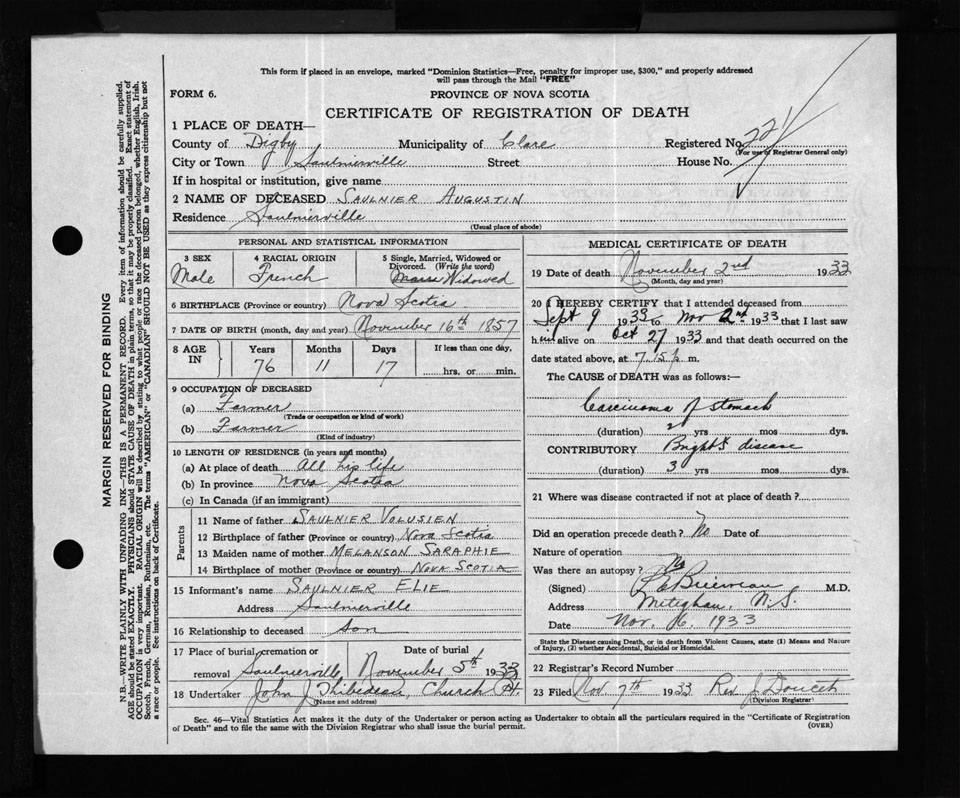 This form if placed in an envelope, marked "Dominion Statistics—Free, penalty for improper use, $300," and properly addressed
will pass through the Mail "FREE"
FORM 6.
PROVINCE OF NOVA SCOTIA
CERTIFICATE OF REGISTRATION OF DEATH
1 PLACE OF DEATH—
County of Digby Municipality of Clare Registered No. 221
(For use of Registrar General only)
City or Town Saulnierville Street House No.
If in hospital or institution, give name
2 NAME OF DECEASED SAULNIER AUGUSTIN
Residence Saulnierville
(Usual place of abode)
PERSONAL AND STATISTICAL INFORMATION
3 SEX 4 RACIAL ORIGIN 5 Single, Married, Widowed or Divorced. (Write the word)
Male French Widowed
6 BIRTHPLACE (Province or country) Nova Scotia
7 DATE OF BIRTH (month, day and year) November 16th 1857
8 AGE IN Years Months Days If less than one day,
76 11 17 hrs. or min.
9 OCCUPATION OF DECEASED
(a) Farmer
(Trade or occupation or kind of work)
(b) Farmer
(Kind of industry)
10 LENGTH OF RESIDENCE (in years and months)
(a) At place of death All his life
(b) In province Nova Scotia
(c) In Canada (if an immigrant)
Parents
11 Name of father SAULNIER VOLUSIEN
12 Birthplace of father (Province or country) Nova Scotia
13 Maiden name of mother MELANSON SARAPHIE
14 Birthplace of mother (Province or country) NOVA SCOTIA
15 Informant's name SAULNIER ELIE
Address Saulnierville
16 Relationship to deceased son
17 Place of burial, cremation or removal Saulnierville Date of burial November 5th 1933
18 Undertaker John J. Thibedeau, Church Pt.
(Name and address)
MEDICAL CERTIFICATE OF DEATH
19 Date of death November 2nd 1933
(Month, day and year)
20 I HEREBY CERTIFY that I attended deceased from
Sept 9 1933 to Nov 2nd 1933 that I last saw
him alive on Oct 27 1933 and that death occurred on the
date stated above, at 7.15 p m.
The CAUSE of DEATH was as follows:—
Carcinoma of stomach
(duration) 2 yrs mos dys.
CONTRIBUTORY Bright's disease
(duration) 3 yrs mos dys.
21 Where was disease contracted if not at place of death ?
Did an operation precede death ? No Date of
Nature of operation
Was there an autopsy ? No
(Signed) M.D.
Address Meteghan, N.S.
Date Nov. 6. 1933
State the Disease causing Death, or in death from Violent Causes, state (1) Means and Nature
of Injury, (2) whether Accidental, Suicidal or Homicidal.
22 Registrar's Record Number
23 Filed Nov. 7th 1933 Rev. J Doucet
(Division Registrar)
Sec. 46—Vital Statistics Act makes it the duty of the Undertaker or person acting as Undertaker to obtain all the particulars required in the "Certificate of Registration
of Death" and to file the same with the Division Registrar who shall issue the burial permit.
(OVER)
MARGIN RESERVED FOR BINDING
N.B.—WRITE PLAINLY WITH UNFADING INK—THIS IS A PERMANENT RECORD. Every item of information should be carefully supplied.
AGE should be stated EXACTLY. PHYSICIANS should STATE CAUSE OF DEATH in plain terms, so that it may be properly classified. Exact statement of
OCCUPATION is very important. RACIAL ORIGIN will be described by stating to what people or race the deceased person belonged, whether English, Irish,
Scotch, French, German, Russian, Ruthenian, etc. The terms "AMERICAN" or "CANADIAN" SHOULD NOT BE USED as they express citizenship but not
a race or people. See instructions on back of Certificate.